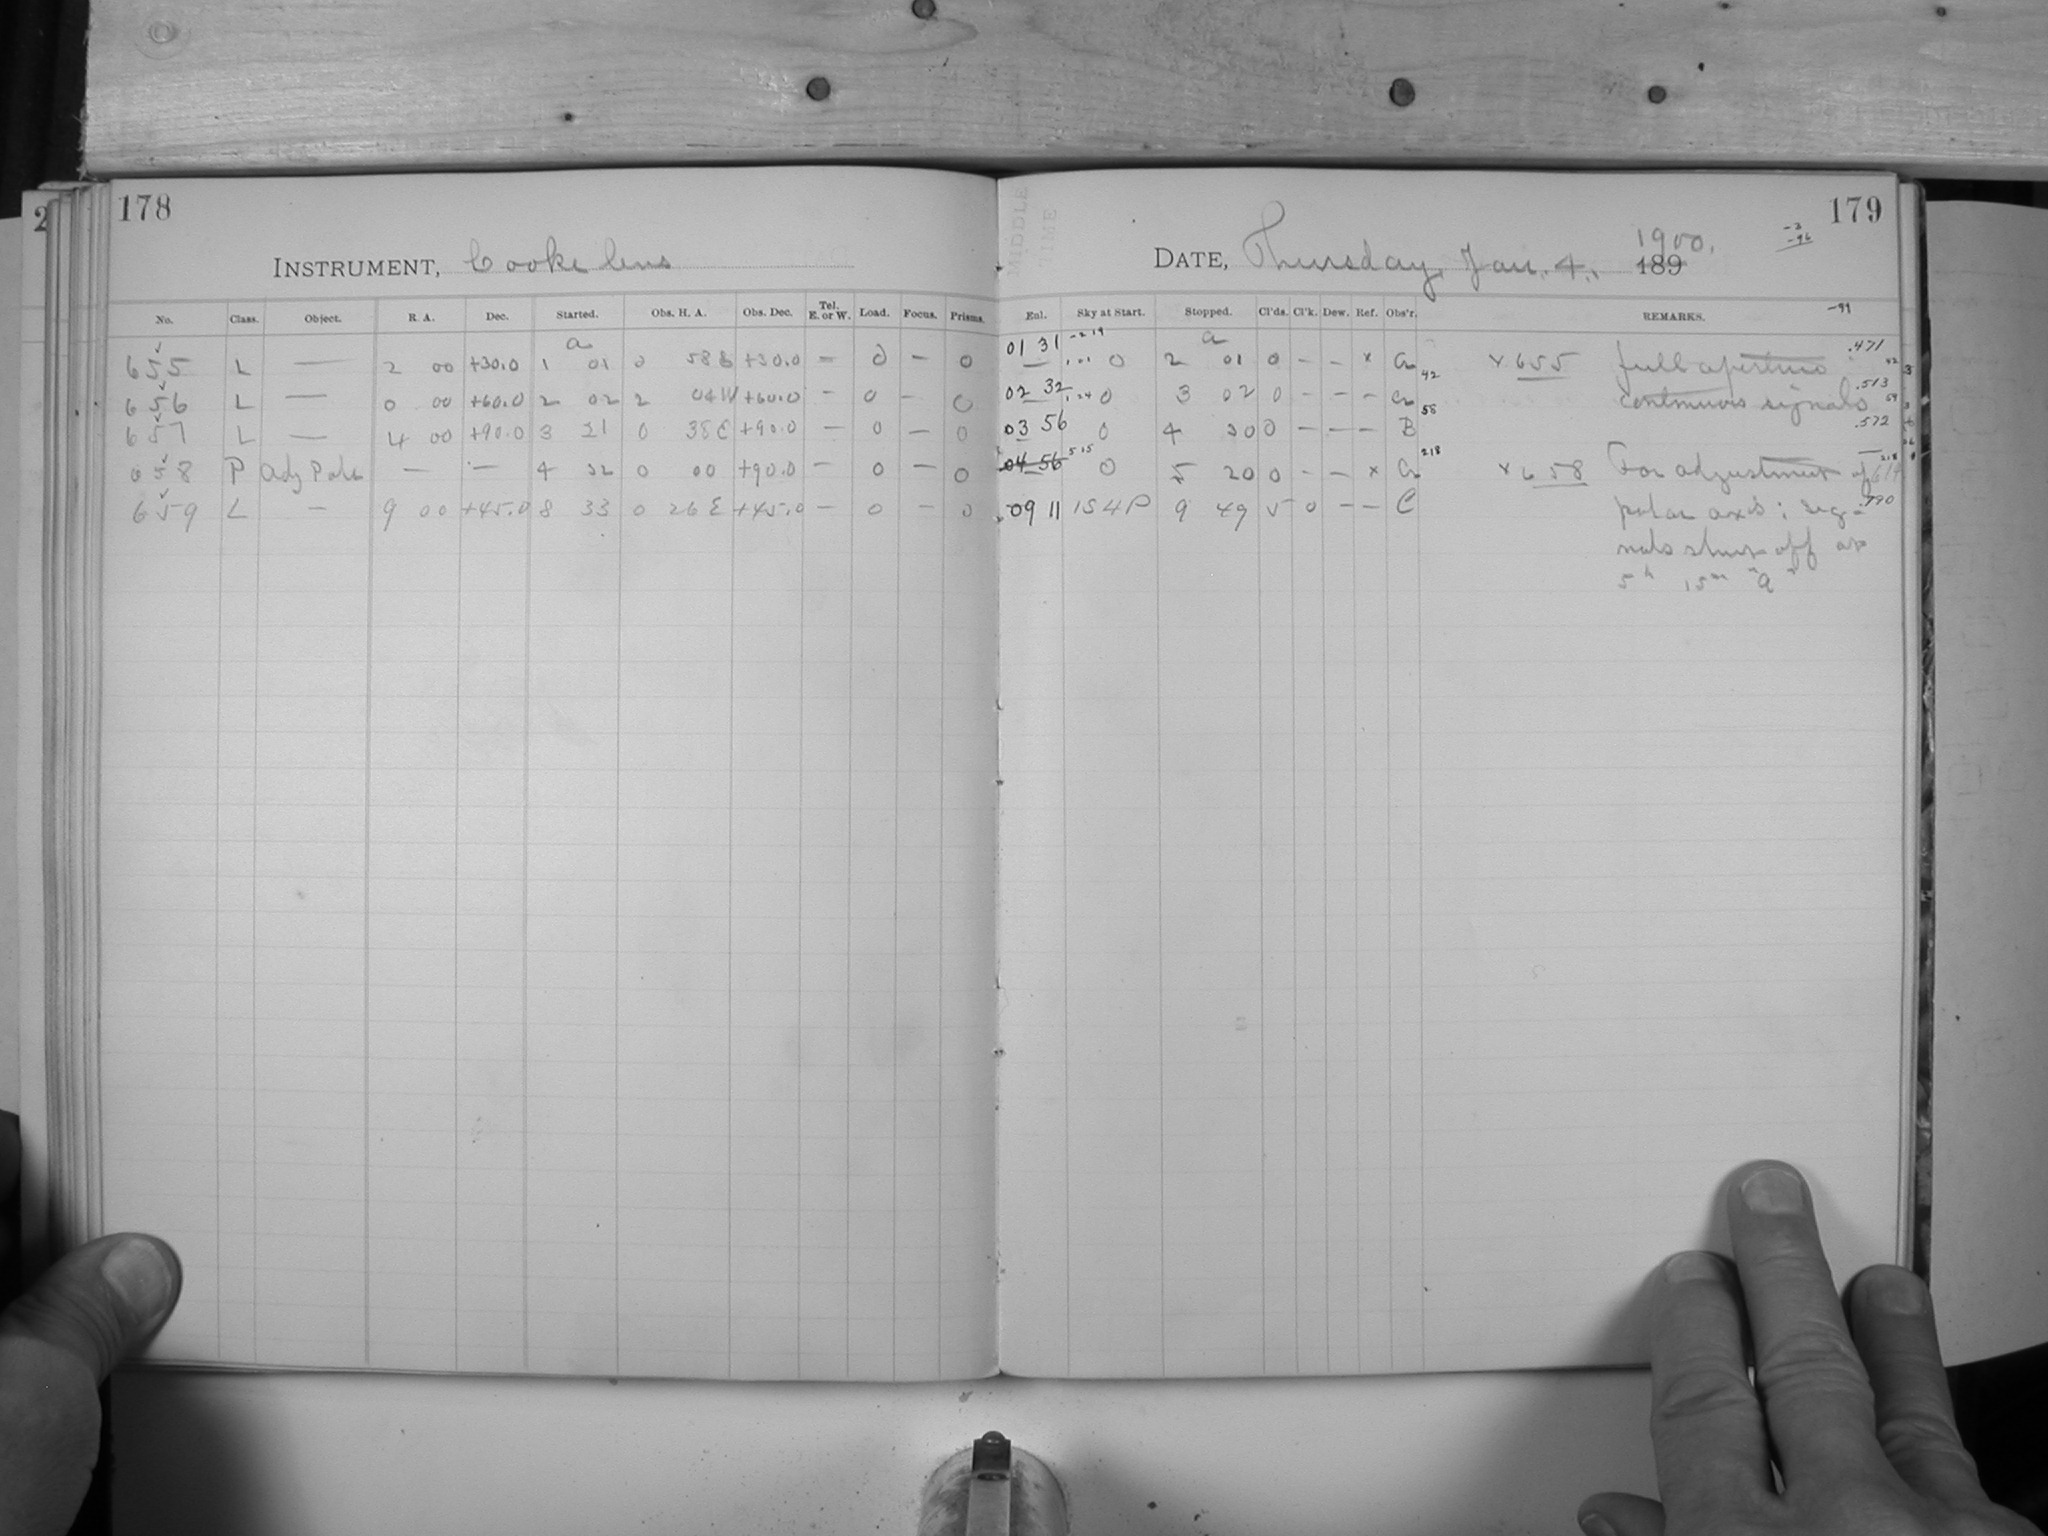 2
178
179
INSTRUMENT, Cooke lens
MIDDLE TIME
DATE, Thursday, Jan. 4., 1900. 189
-3
-96
No. Class. Object. R. A. Dec. Started. Obs. H. A. Obs. Dec. Tel. E. or W. Load. Focus. Prisms. Enl. Sky at Start. Stopped. Cl'ds. Cl'k. Dew. Ref. Obs'r. REMARKS. -99
a a
655 L — 2 00 +30.0 1 01 0 58 E +30.0 — 0 — 0 01 31 0 2 01 0 — — x x 655 full aperture: .471
656 L — 0 00 +60.0 2 02 2 04 W +60.0 — 0 — 0 02 32 0 3 02 0 — — — 42 continuous signals .513
657 L — 4 00 +90.0 3 21 0 38 E +90.0 — 0 — 0 03 56 0 4 30 0 — — — B 58 .572
658 P Adj Pole — — 4 32 0 00 +90.0 — 0 — 0 04 56 5 15 0 5 20 0 — — x 218 x 658 For adjustment of
659 L — 9 00 +45.0 8 33 0 26 E +45.0 — 0 — 0 09 11 1S4P 9 49 5 0 — — C polar axis; sig- .790
nals shut off at
5h 15m "a"